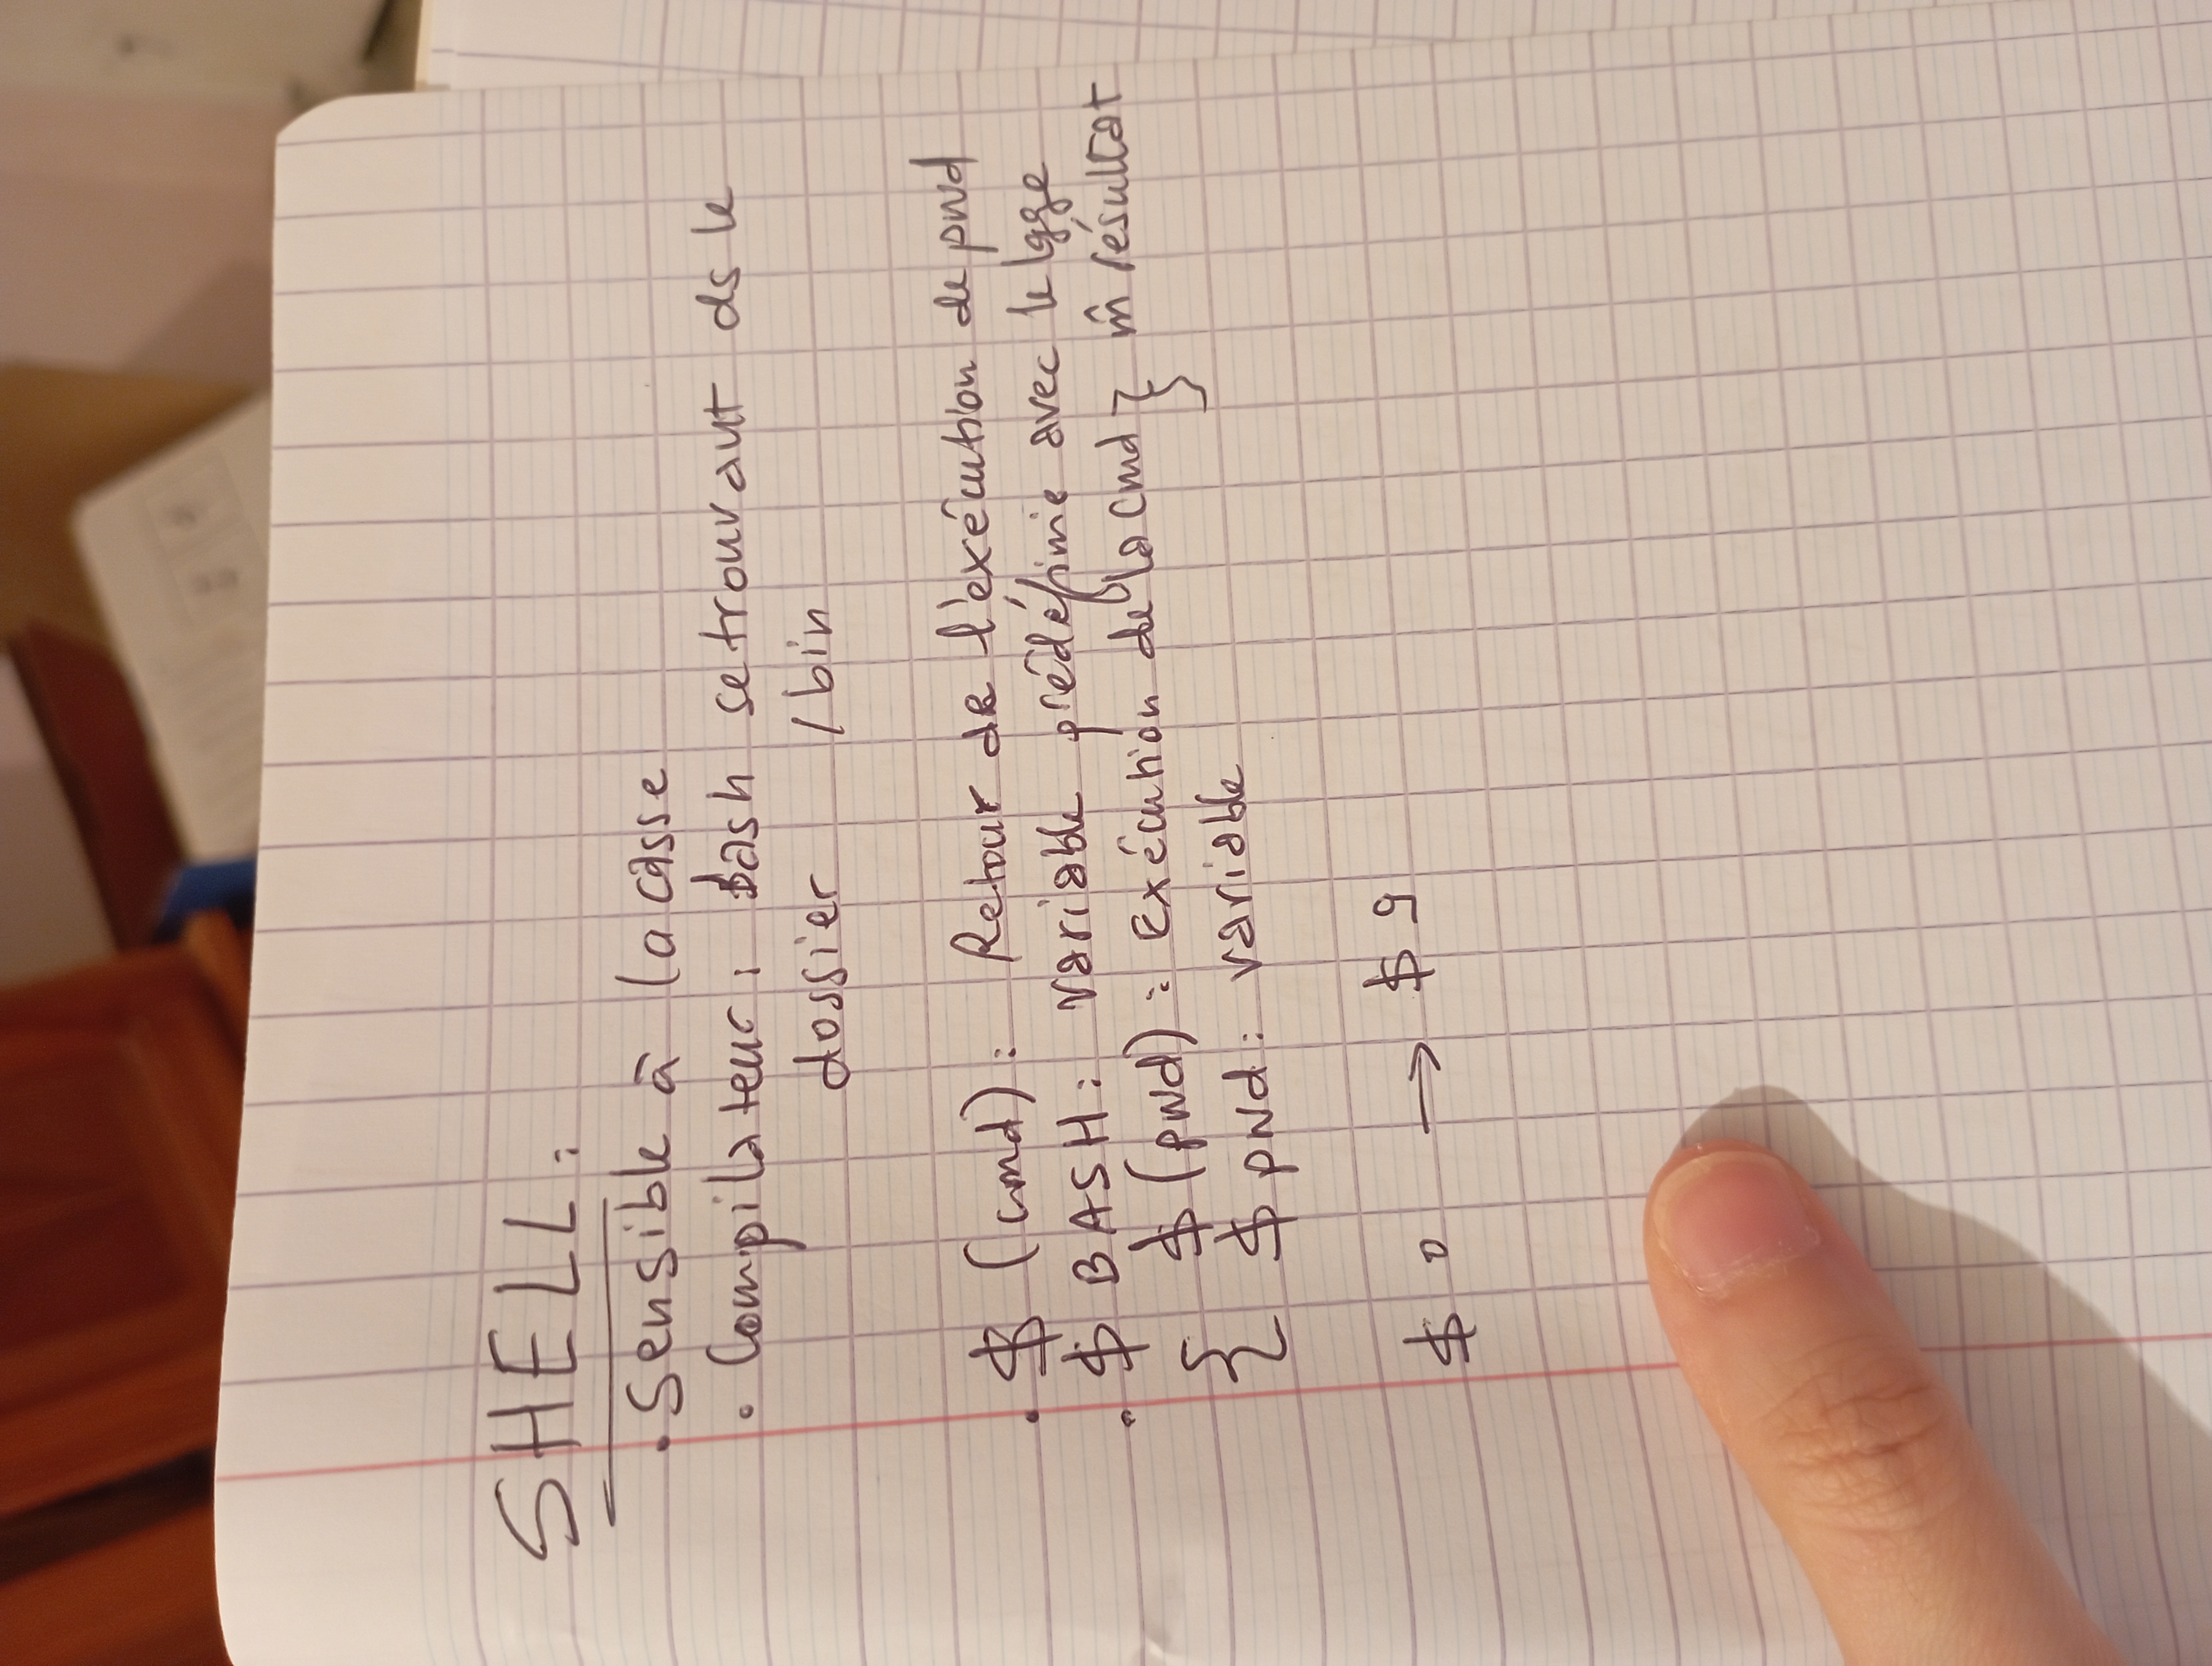 SHELL :
• Sensible à la casse
• Compilateur : bash se trouvant ds le
dossier /bin
• $ (cmd) : Retour de l'exécution de pwd
• $ BASH : variable prédéfinie avec le lgge
{ $ (pwd) : Exécution de la cmd } m̂ résultat
$ pwd : variable
$ 0 → $ 9